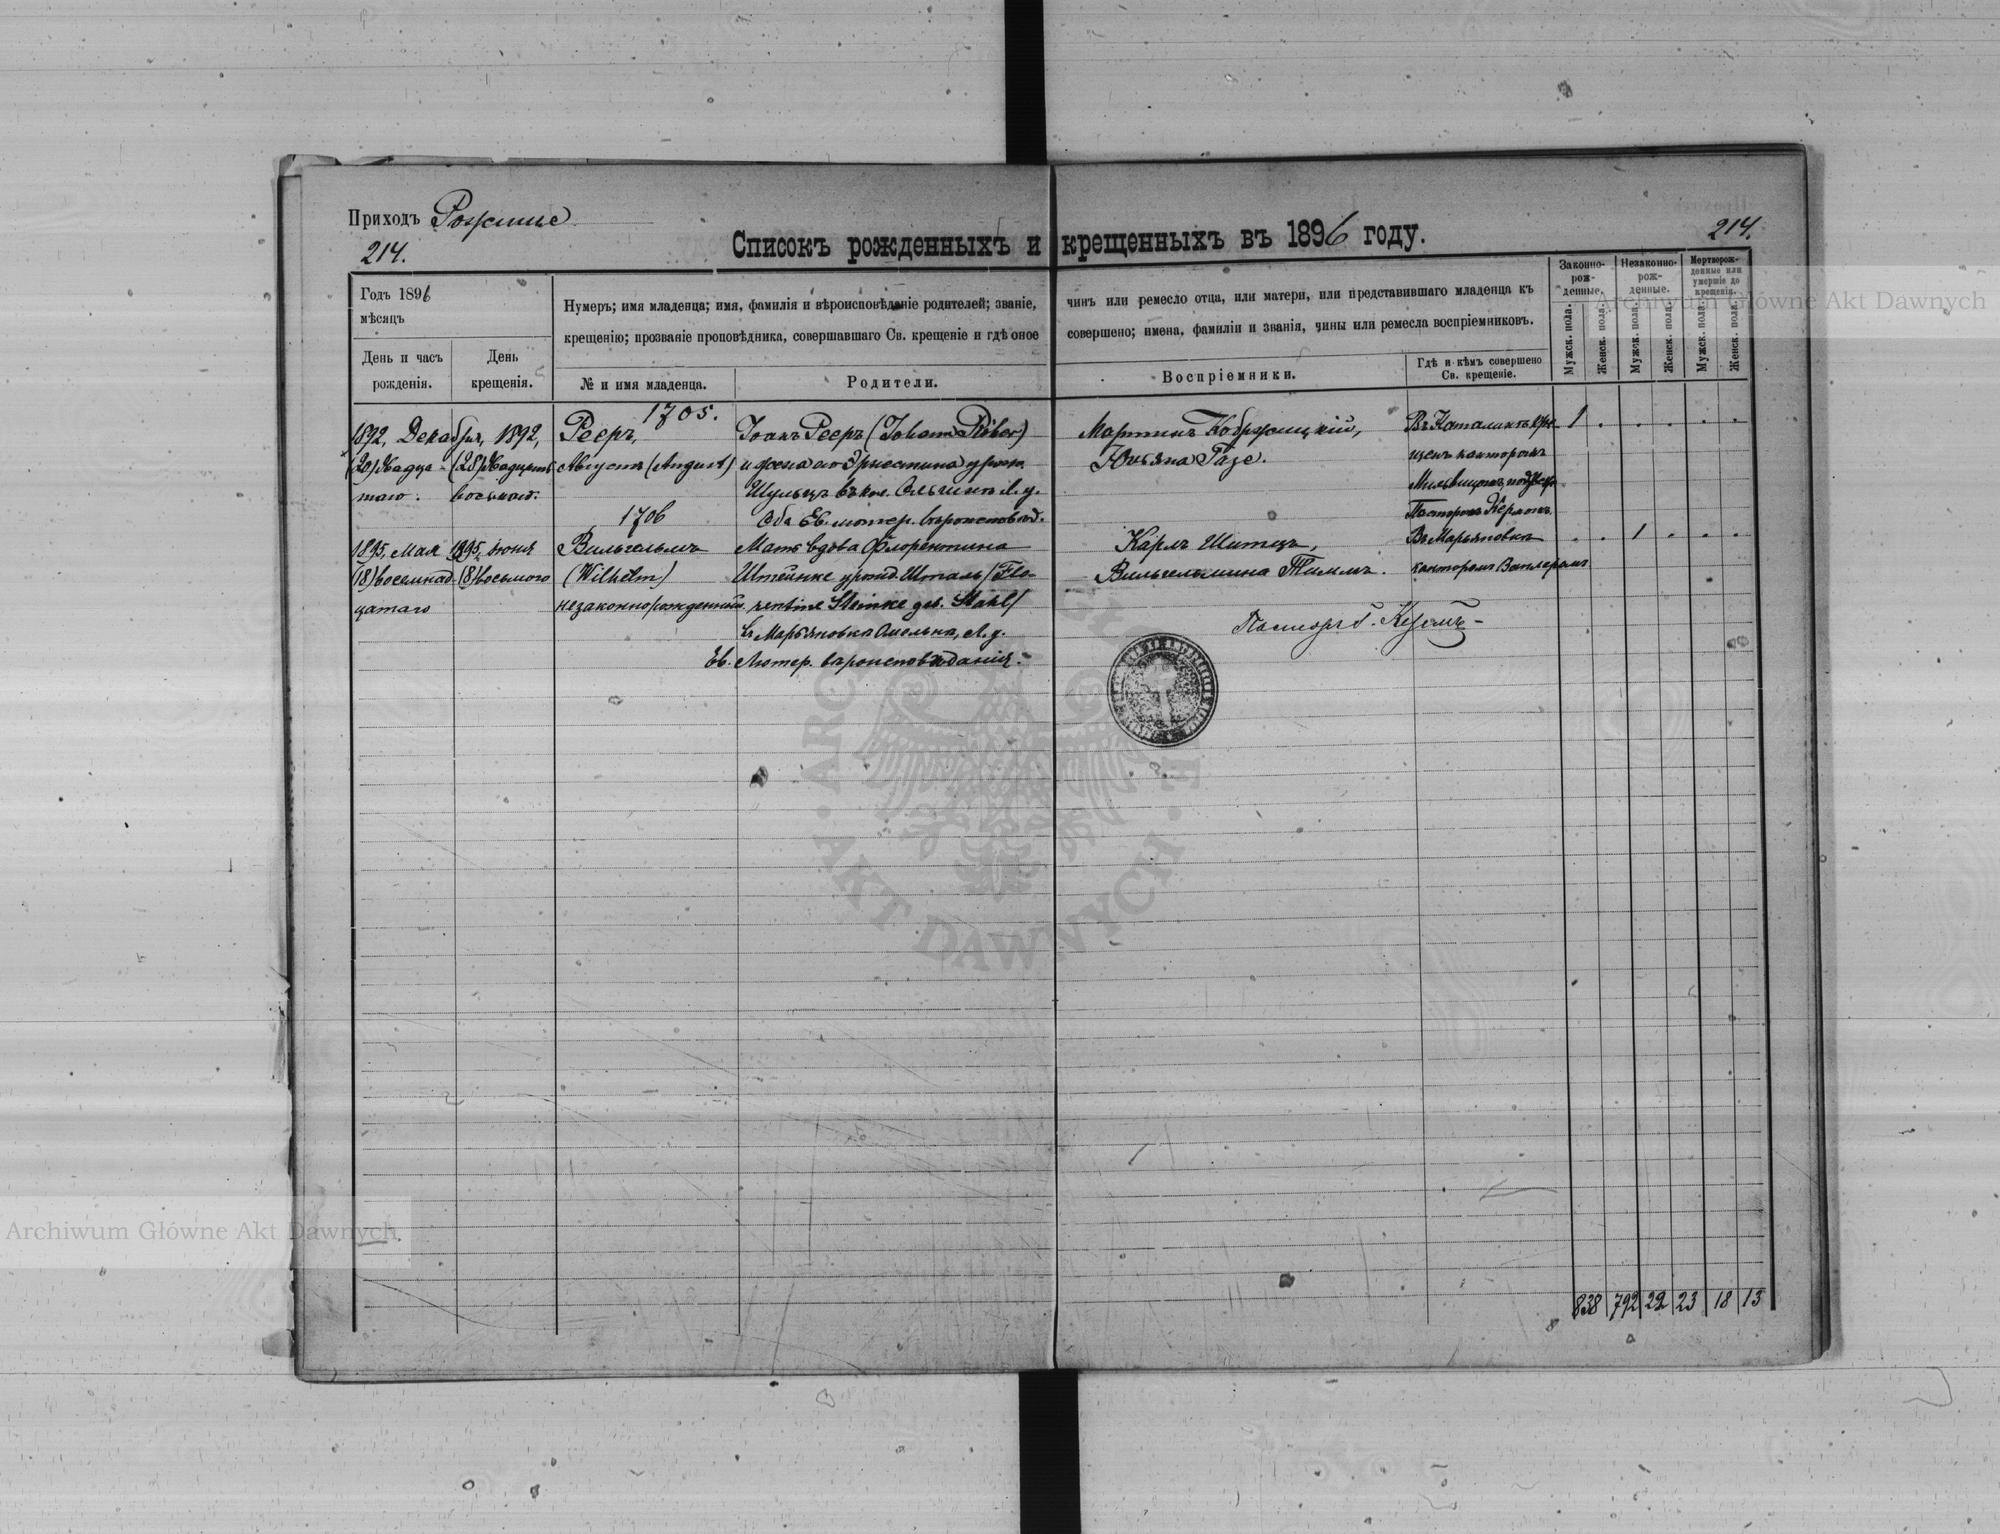 Приходъ Рожище
214.
214.
Списокъ рожденныхъ и крещенныхъ въ 1896 году.
Годъ 1896
мѣсяцъ
День и часъ рожденія.
День крещенія.
Нумеръ; имя младенца; имя, фамилія и вѣроисповѣданіе родителей; званіе, чинъ или ремесло отца, или матери, или представившаго младенца къ
крещенію; прозваніе проповѣдника, совершавшаго Св. крещеніе и гдѣ оное совершено; имена, фамиліи и званія, чины или ремесла воспріемниковъ.
№ и имя младенца.
Родители.
Воспріемники.
Гдѣ и кѣмъ совершено Св. крещеніе.
Законно-рож-денные.
Незаконно-рож-денные.
Мертворож-денные или умершіе до крещенія.
Мужск. пола.
Женск. пола.
Мужск. пола.
Женск. пола.
Мужск. пола.
Женск. пола.
1705.
1892, Декабря, 1892,
(20) двадца-
таго.
(28) двадцать
восьмаго.
Рееръ,
Августъ (August)
Іоанъ Рееръ (Johann Röber)
и жена его Эрнестина урожд.
Шульцъ въ кол.
Оба Ев. лютер. вѣроисповѣд.
Мартинъ
Юльяна Разе.
канторомъ
1 . . . . .
1706
1895, Мая 1895, Іюня
(18) восемнад-
цатаго
(8) восьмого
Вильгельмъ
(Wilhelm)
незаконнорожденный
Мать вдова Флорентина
Штейнке урожд. Шталь (Flo-
rentine Steinke geb. Stahl)
въ Марьяновка Омельна, Л. у.
Ев. Лютер. вѣроисповѣданія.
Карлъ Шитцъ,
Вильгельмина Тиммъ.
Въ Марьяновкѣ
канторомъ
. . 1 . . .
Пасторъ
838 792 22 23 18 13
Archiwum Główne Akt Dawnych
Archiwum Główne Akt Dawnych
AKT DAWNYCH